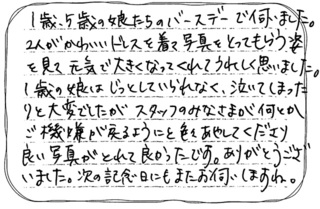 1歳、5歳の娘たちのバースデーで伺いました。
2人がかわいいドレスを着て写真をとってもらう姿
を見て元気で大きくなってくれてうれしく思いました。
1歳の娘はじっとしていられなく、泣いてしまった
りと大変でしたがスタッフのみなさまが何とか
ご機嫌が戻るようにと色々あやしてくださり
良い写真がとれて良かったです。ありがとうござ
いました。次の記念日にもまたお伺いしますね。